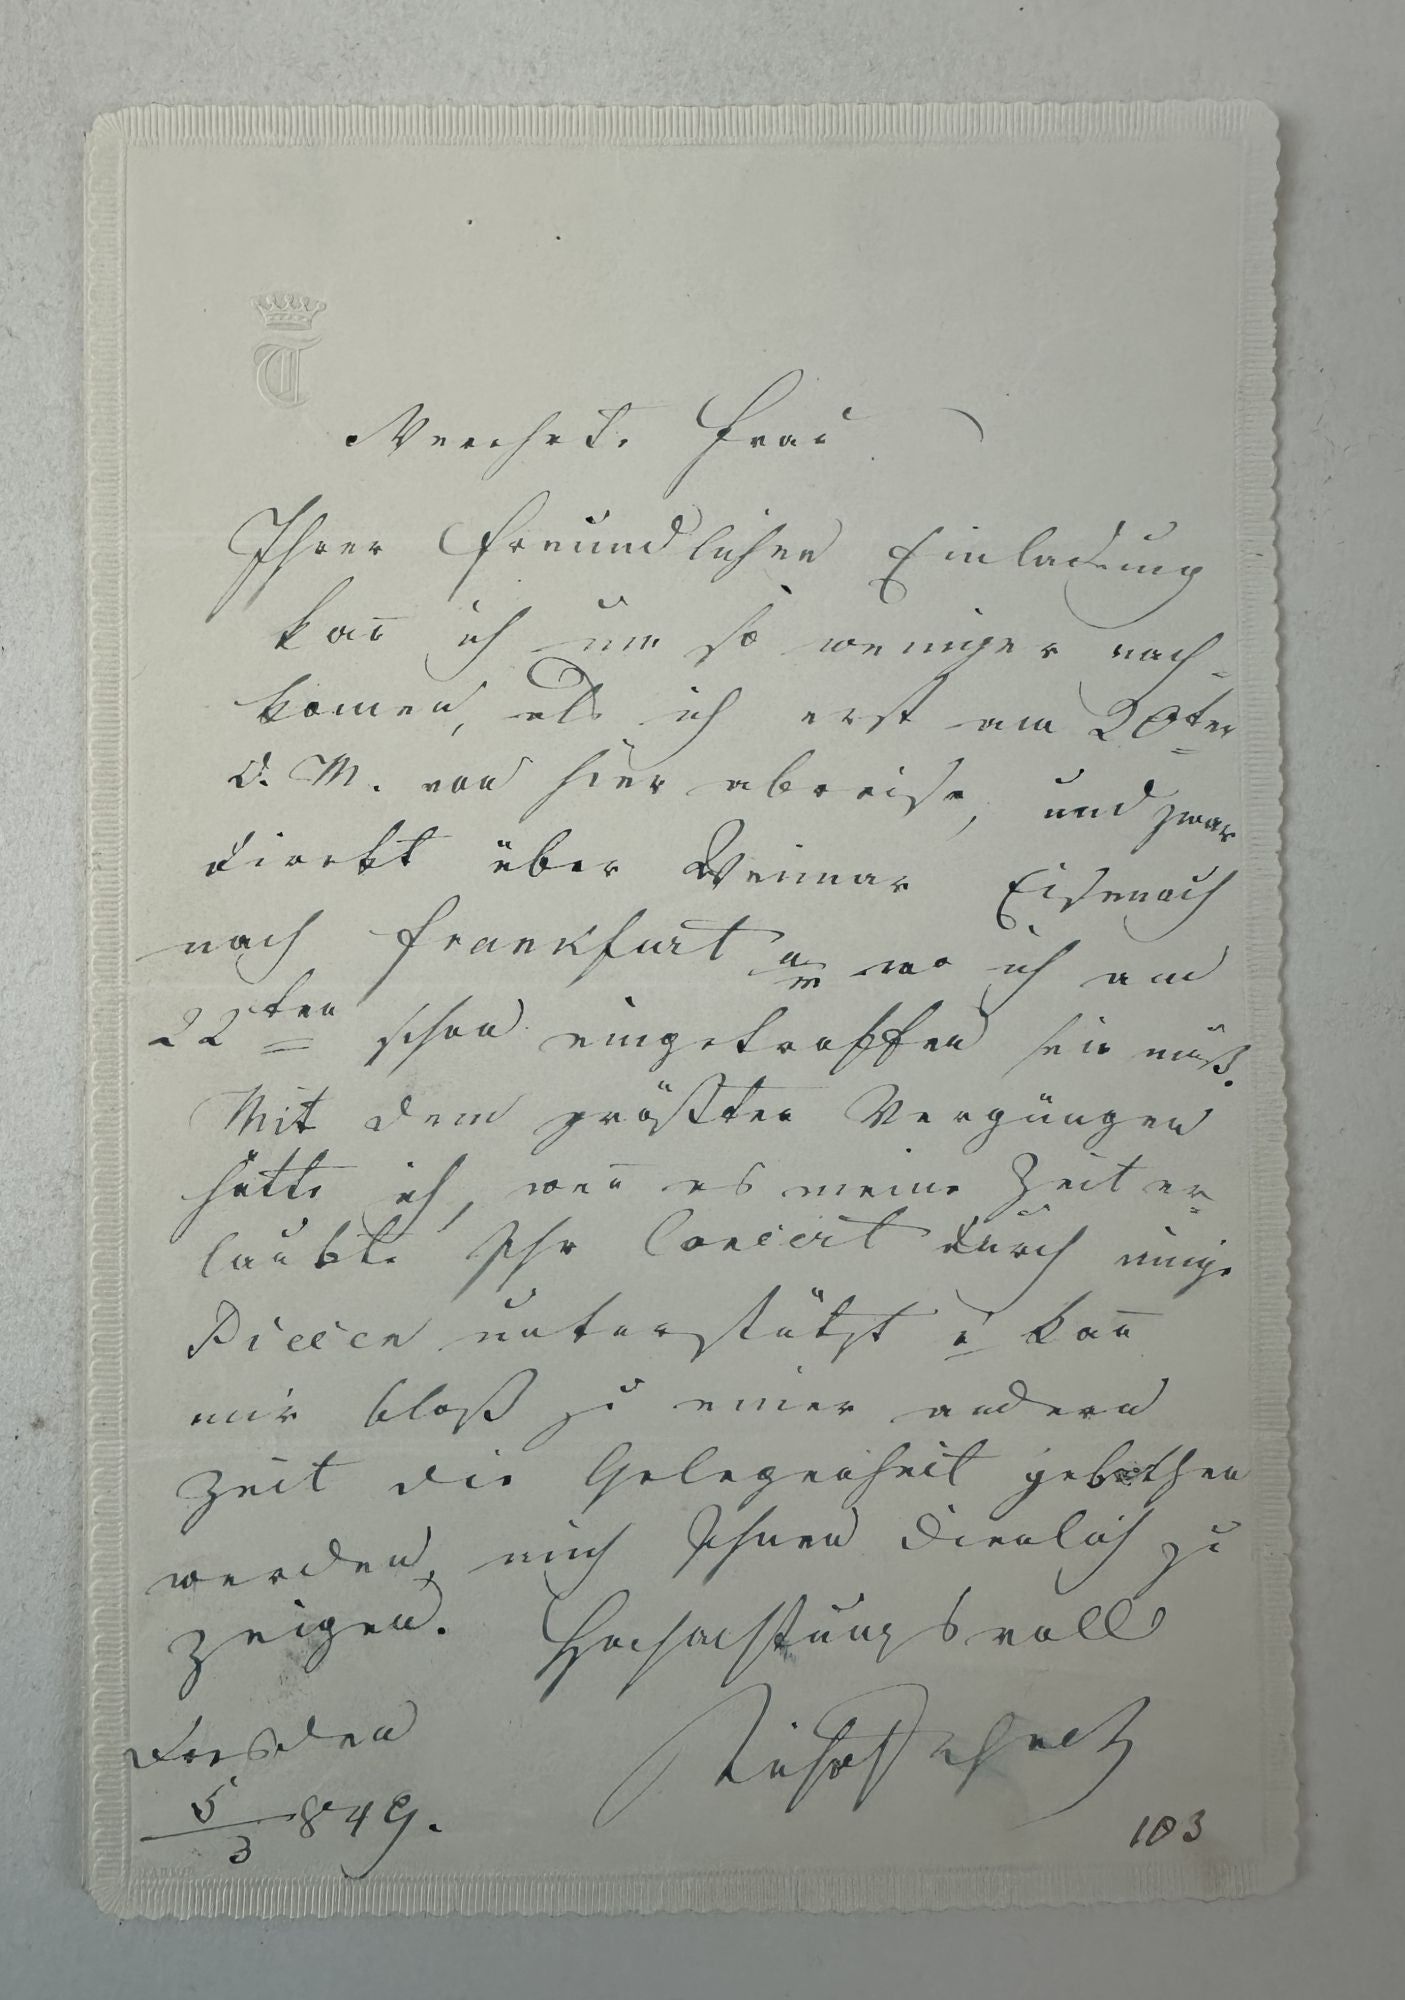 T
Verehrte Frau
Ihrer freundlichen Einladung
kan̄ ich um so weniger nach-
komen, als ich erst am 20ten
d. M. von hier abreise, und zwar
direkt über Weimar Eisenach
nach Frankfurt a/m wo ich am
22ten schon eingetroffen sein muß.
Mit dem größten Vergüngen
hätte ich, wen̄ es meine Zeit er-
laubte Ihr Concert durch einige
Piecen unterstützt u kan̄
mir bloß zu einer andern
Zeit die Gelegenheit gebothen
werden, mich Ihnen dienlich zu
zeigen. Hochachtungsvoll
Dresden Tichatscheck
5/3 849.
103